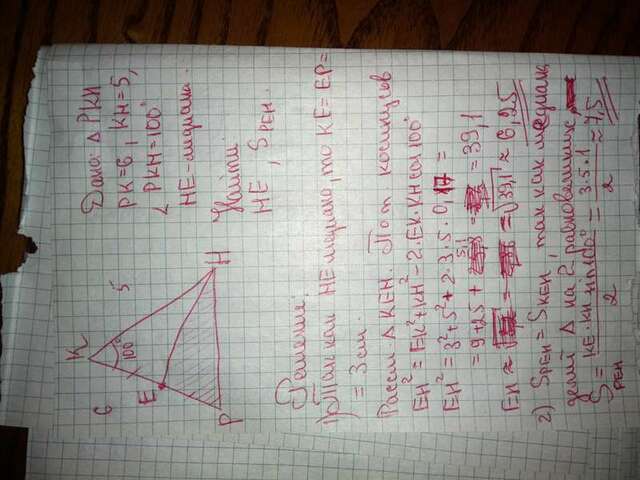 K
6
Дано: △ PKH
100°
5
PK=6, KH=5,
∠ PKH=100°
E
HE-медиана.
P
H
Найти:
HE, S_PEH.
Решение:
1) Так как HE медиана, то KE=EP=
= 3см.
Рассм. △ KEH. По т. косинусов
EH² = EK²+KH²-2·EK·KH cos 100°
EH² = 3²+5²+2·3·5·0,17 =
= 9+25+ 5,1 = 39,1
EH ≈ = √39,1 ≈ 6,25
2) S_PEH = S_KEH, так как медиана
делит △ на 2 равновеликих,
S_PEH = KE·KH sin100°/2 = 3·5·1/2 ≈ 7,5